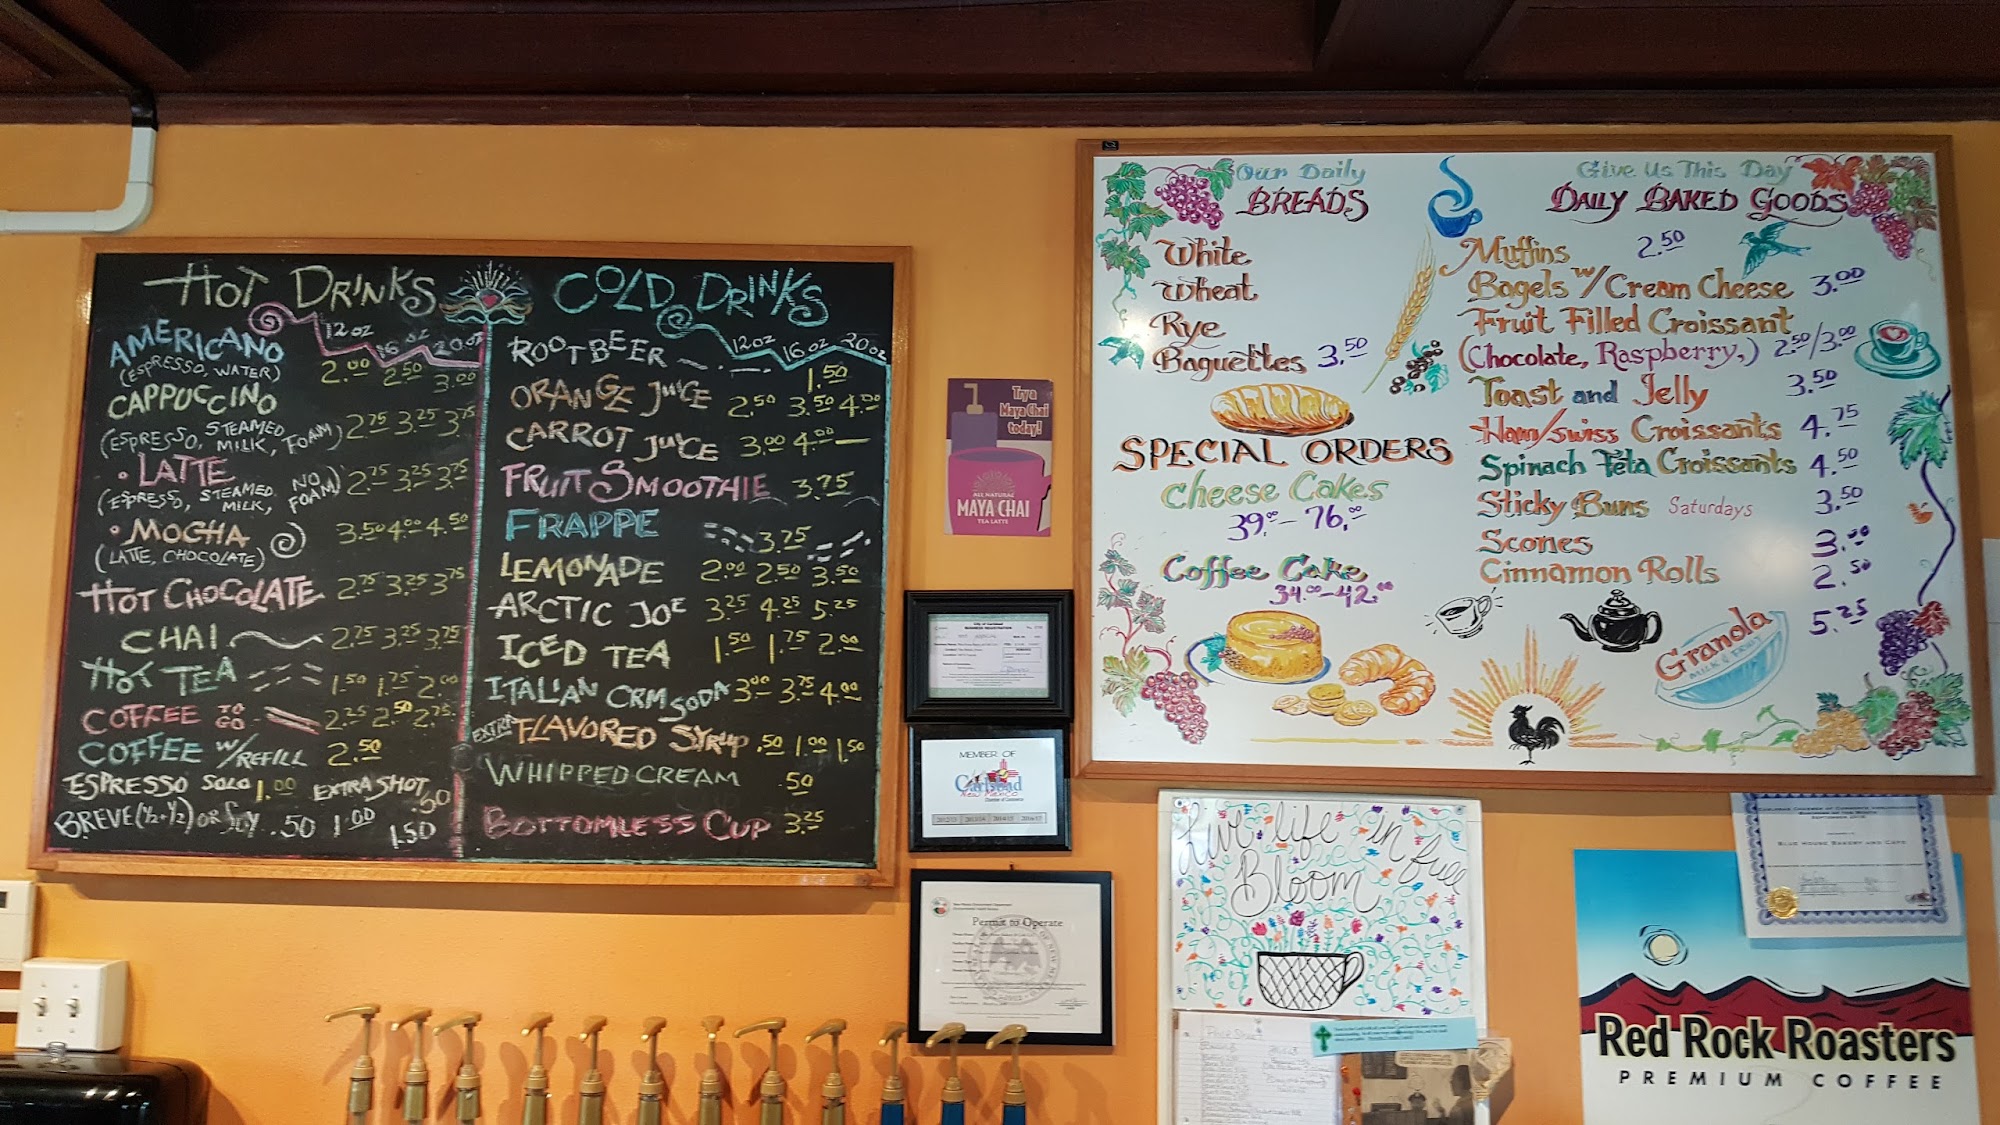 HOT DRINKS
12 oz 16 oz 20 oz
AMERICANO 2.00 2.50 3.00
(ESPRESSO, WATER)
CAPPUCCINO 2.75 3.25 3.75
(ESPRESSO, STEAMED MILK, FOAM)
• LATTE 2.75 3.25 3.75
(ESPRESSO, STEAMED MILK, NO FOAM)
• MOCHA 3.50 4.00 4.50
(LATTE, CHOCOLATE)
HOT CHOCOLATE 2.75 3.25 3.75
CHAI 2.75 3.25 3.75
HOT TEA 1.50 1.75 2.00
COFFEE TO GO 2.25 2.50 2.75
COFFEE W/REFILL 2.50
ESPRESSO SOLO 1.00 EXTRA SHOT .50
BREVE (½+½) OR SOY .50 1.00 1.50
COLD DRINKS
12 oz 16 oz 20 oz
ROOT BEER 1.50
ORANGE JUICE 2.50 3.50 4.00
CARROT JUICE 3.00 4.00 —
FRUIT SMOOTHIE 3.75
FRAPPE 3.75
LEMONADE 2.00 2.50 3.50
ARCTIC JOE 3.25 4.25 5.25
ICED TEA 1.50 1.75 2.00
ITALIAN CRM SODA 3.00 3.75 4.00
EXTRA FLAVORED SYRUP .50 1.00 1.50
WHIPPED CREAM .50
BOTTOMLESS CUP 3.25
Try a
Maya Chai
today!
ALL NATURAL
MAYA CHAI
TEA LATTE
City of Carlsbad
BUSINESS REGISTRATION
MEMBER OF
Carlsbad
New Mexico
Chamber of Commerce
Permit to Operate
Our Daily
BREADS
White
Wheat
Rye
Baguettes 3.50
SPECIAL ORDERS
Cheese Cakes
39.00 – 76.00
Coffee Cake
34.00 – 42.00
Give Us This Day
DAILY BAKED GOODS
Muffins 2.50
Bagels w/Cream Cheese 3.00
Fruit Filled Croissant
(Chocolate, Raspberry,) 2.50/3.00
Toast and Jelly 3.50
Ham/swiss Croissants 4.75
Spinach Feta Croissants 4.50
Sticky Buns Saturdays 3.50
Scones 3.00
Cinnamon Rolls 2.50
Granola 5.25
MILK & FRUIT
Live life in full
Bloom
BLUE HOUSE BAKERY AND CAFE
Red Rock Roasters
PREMIUM COFFEE